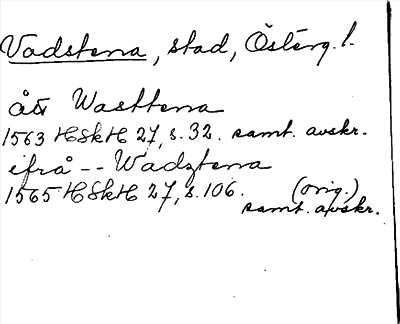 Vadstena, stad, Österg.l.
åt Wasttena
1563 HSkH 27, s. 32. samt. avskr.
ifrå -- Wadztena
1565 HSkH 27, s. 106. (orig.)
samt. avskr.